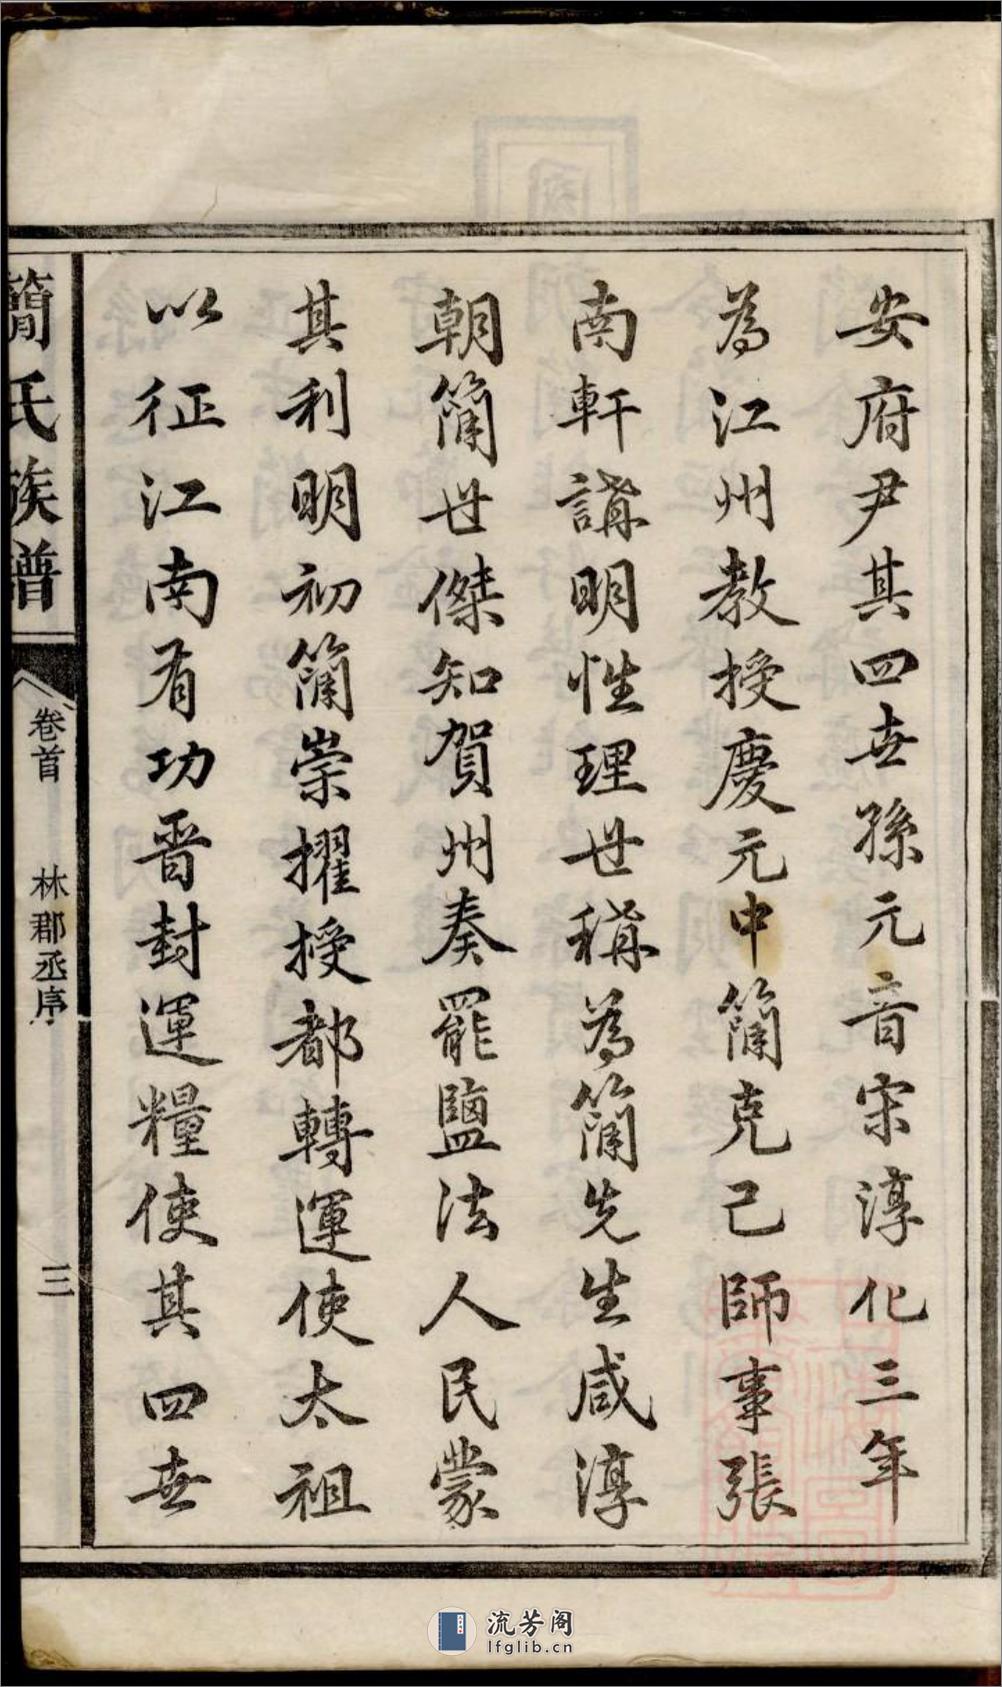 安府尹其四世孫元音宋淳化三年
為江州教授慶元中簡克己師事張
南軒講明性理世稱為簡先生咸淳
朝簡世傑知賀州奏罷鹽法人民蒙
其利明初簡崇擢授都轉運使太祖
以征江南有功晋封運糧使其四世
簡氏族譜
卷首
林郡丞序
三
流芳阁
lfglib.cn